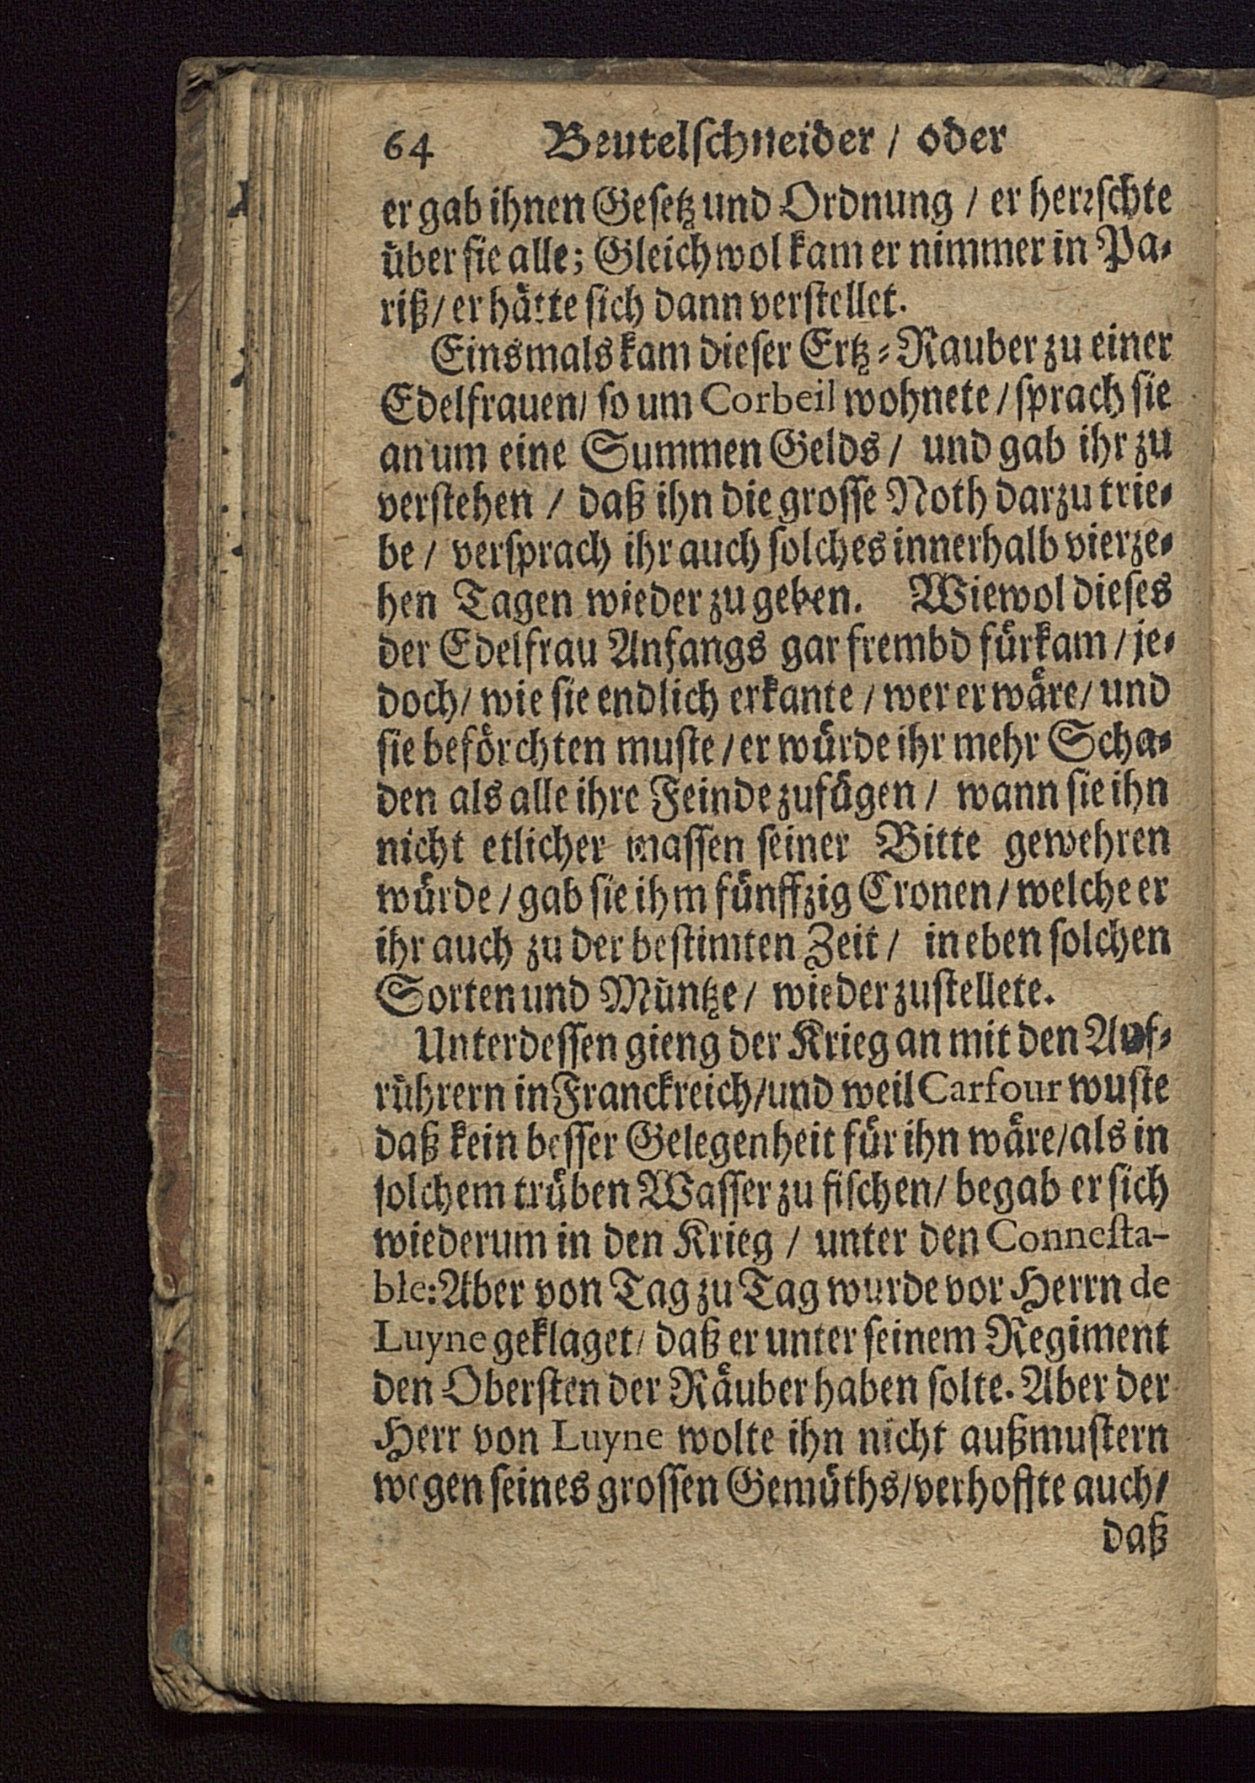 64 Beutelschneider / oder
er gab ihnen Gesetz und Ordnung / er herrschte
über sie alle; Gleichwol kam er nimmer in Pa-
riß / er hätte sich dann verstellet.
Einsmals kam dieser Ertz-Rauber zu einer
Edelfrauen / so um Corbeil wohnete / sprach sie
an um eine Summen Gelds / und gab ihr zu
verstehen / daß ihn die grosse Noth darzu trie-
be / versprach ihr auch solches innerhalb vierze-
hen Tagen wieder zu geben. Wiewol dieses
der Edelfrau Anfangs gar frembd fürkam / je-
doch / wie sie endlich erkante / wer er wäre / und
sie beförchten muste / er würde ihr mehr Scha-
den als alle ihre Feinde zufügen / wann sie ihn
nicht etlicher massen seiner Bitte gewehren
würde / gab sie ihm fünffzig Cronen / welche er
ihr auch zu der bestimten Zeit / in eben solchen
Sorten und Müntze / wieder zustellete.
Unterdessen gieng der Krieg an mit den Auf-
rührern in Franckreich / und weil Carfour wuste
daß kein besser Gelegenheit für ihn wäre / als in
solchem trüben Wasser zu fischen / begab er sich
wiederum in den Krieg / unter den Connesta-
ble: Aber von Tag zu Tag wurde vor Herrn de
Luyne geklaget / daß er unter seinem Regiment
den Obersten der Räuber haben solte. Aber der
Herr von Luyne wolte ihn nicht außmustern
wegen seines grossen Gemüths / verhoffte auch /
daß